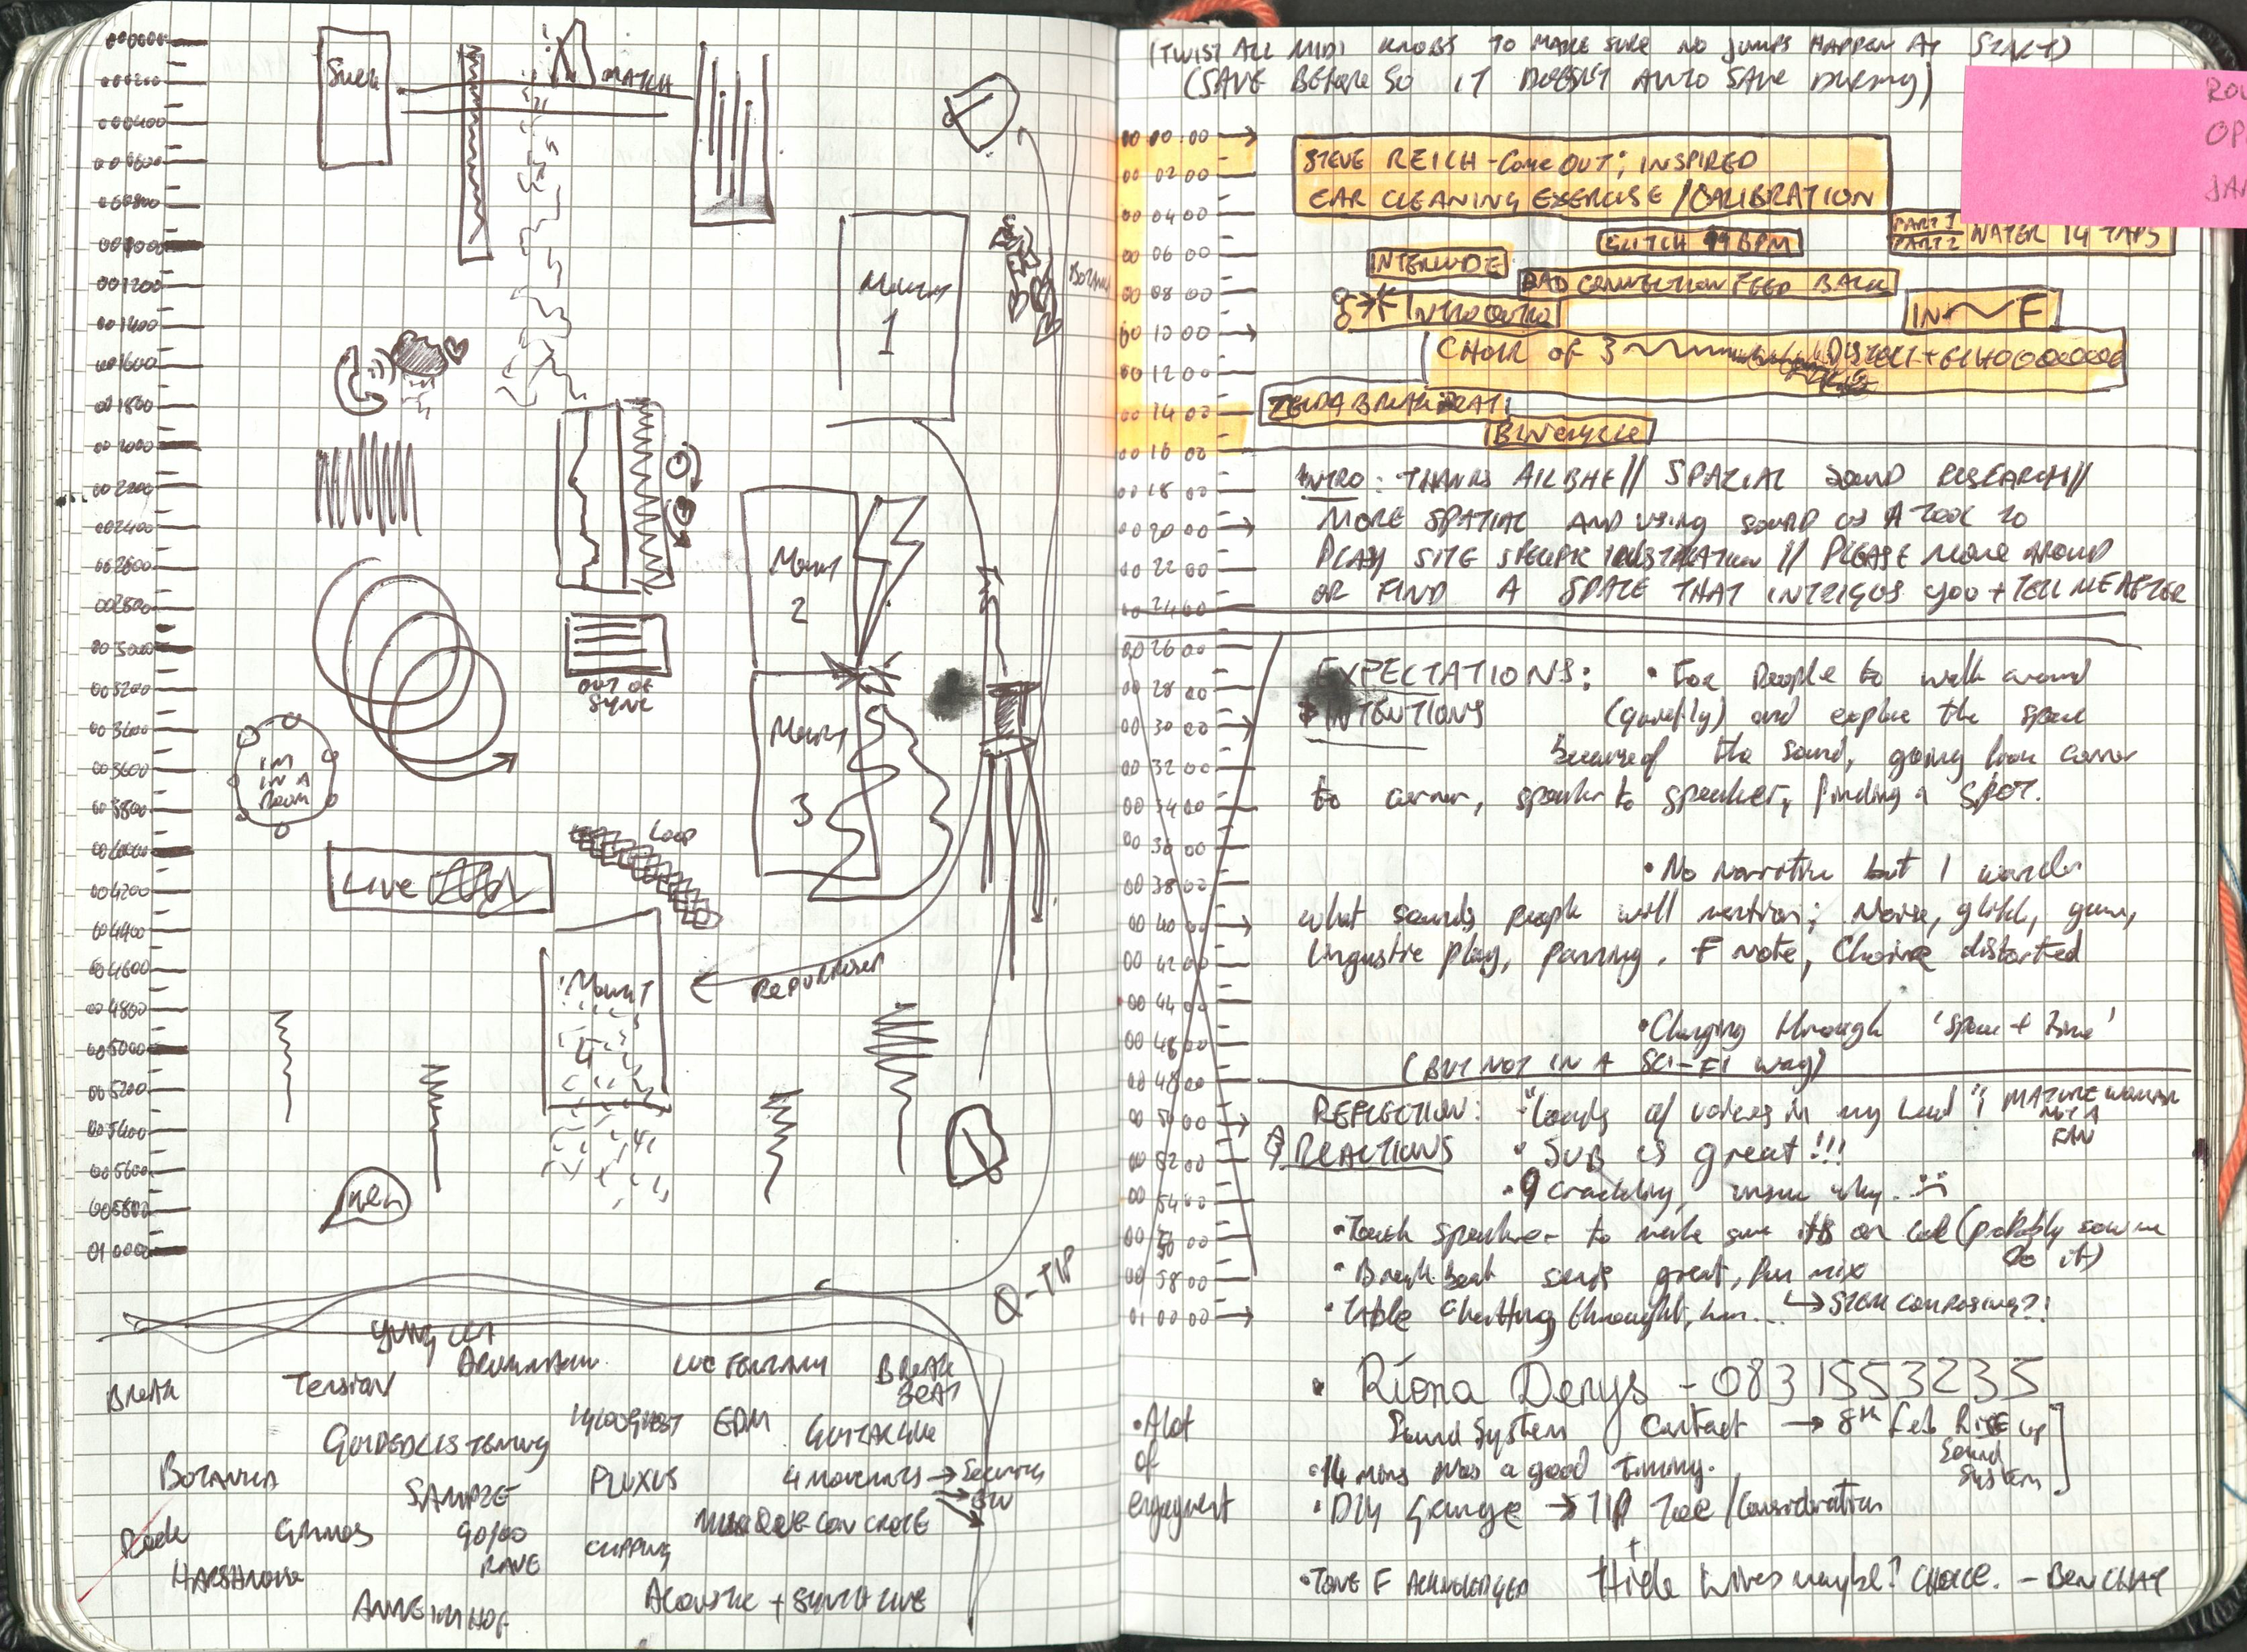 000000
000200
000400
000600
000800
001000
001200
001400
001600
001800
002000
002200
002400
002600
002800
003000
003200
003400
003600
003800
004000
004200
004400
004600
004800
005000
005200
005400
005600
005800
010000
MATCH
Mount
1
BOTANICA
Mount
2
OUT OF
SYNC
Mount
3
I'M
IN A
ROOM
LOOP
LIVE
Mount
4
REPURPOSED
Q-TIP
YUNG
BREAK
TENSION
LUC FERRARI
BREAK
BEAT
GUIDED LISTENING
EDM
GUITAR LIVE
BOTANICA
SAMPLE
FLUXUS
4 MOVEMENTS → SECTIONS
ROCK
90/00
RAVE
CLIPPING
MUSIQUE CONCRETE
HARSH NOISE
ANNE IMHOF
ACOUSTIC + SYNTH LIVE
(TWIST ALL MIDI KNOBS TO MAKE SURE NO JUMPS HAPPEN AT START)
(SAVE BEFORE SO IT DOESN'T AUTO SAVE DURING)
00 00:00
00 02 00
00 04 00
00 06 00
00 08 00
00 10 00
00 12 00
00 14 00
00 16 00
00 18 00
00 20 00
00 22 00
00 24 00
00 26 00
00 28 00
00 30 00
00 32 00
00 34 00
00 36 00
00 38 00
00 40 00
00 42 00
00 44 00
00 48 00
00 48 00
00 50 00
00 52 00
00 54 00
00 56 00
00 58 00
01 00 00
STEVE REICH - COME OUT; INSPIRED
EAR CLEANING EXERCISE / CALIBRATION
GLITCH 99 BPM
PART 1
PART 2
WATER 14 TAPS
INTERLUDE
BAD CONNECTION FEED BACK
INTRO OUTRO
IN F
CHOIR OF 3
ZELDA BREAK BEAT
BIN CYCLE
INTRO: THANKS AILBHE // SPATIAL SOUND RESEARCH //
MORE SPATIAL AND USING SOUND AS A TOOL TO
PLAY SITE SPECIFIC INSTALLATION // PLEASE MOVE AROUND
OR FIND A SPACE THAT INTRIGUES YOU + TELL ME AFTER
EXPECTATIONS: • For people to walk around
INTENTIONS (quietly) and explore the space
because of the sound, going from corner
to corner, speaker to speaker, finding a SPOT.
• No narrative but I wonder
what sounds people will mention; Noise, glitch,
linguistic play, panning. F note, Choir distorted
• Changing through 'space + time'
(BUT NOT IN A SCI-FI WAY)
REFLECTION: • "Loads of voices in my head"! MATURE WOMAN
NOT A
FAN
& REACTIONS • SUB IS great!!!
• 9 crackling, unsure why.
• Touch speaker to make sure its on (probably
do it)
• Break beat sends great, fun mix
• Table chatting throughout, hm... ↳ STEM COMPOSING?!
• Ríona Denys - 0831553235
Sound System Contact → 8th Feb RISE up
Sound
System
• A lot
of
engagement
• 14 mins was a good timing.
• DIY → TIP TOE / Consideration
+
• TONE F ACKNOWLEDGED Hide wires maybe? CHOICE. - BEN CHAT
ROU
OP
JA